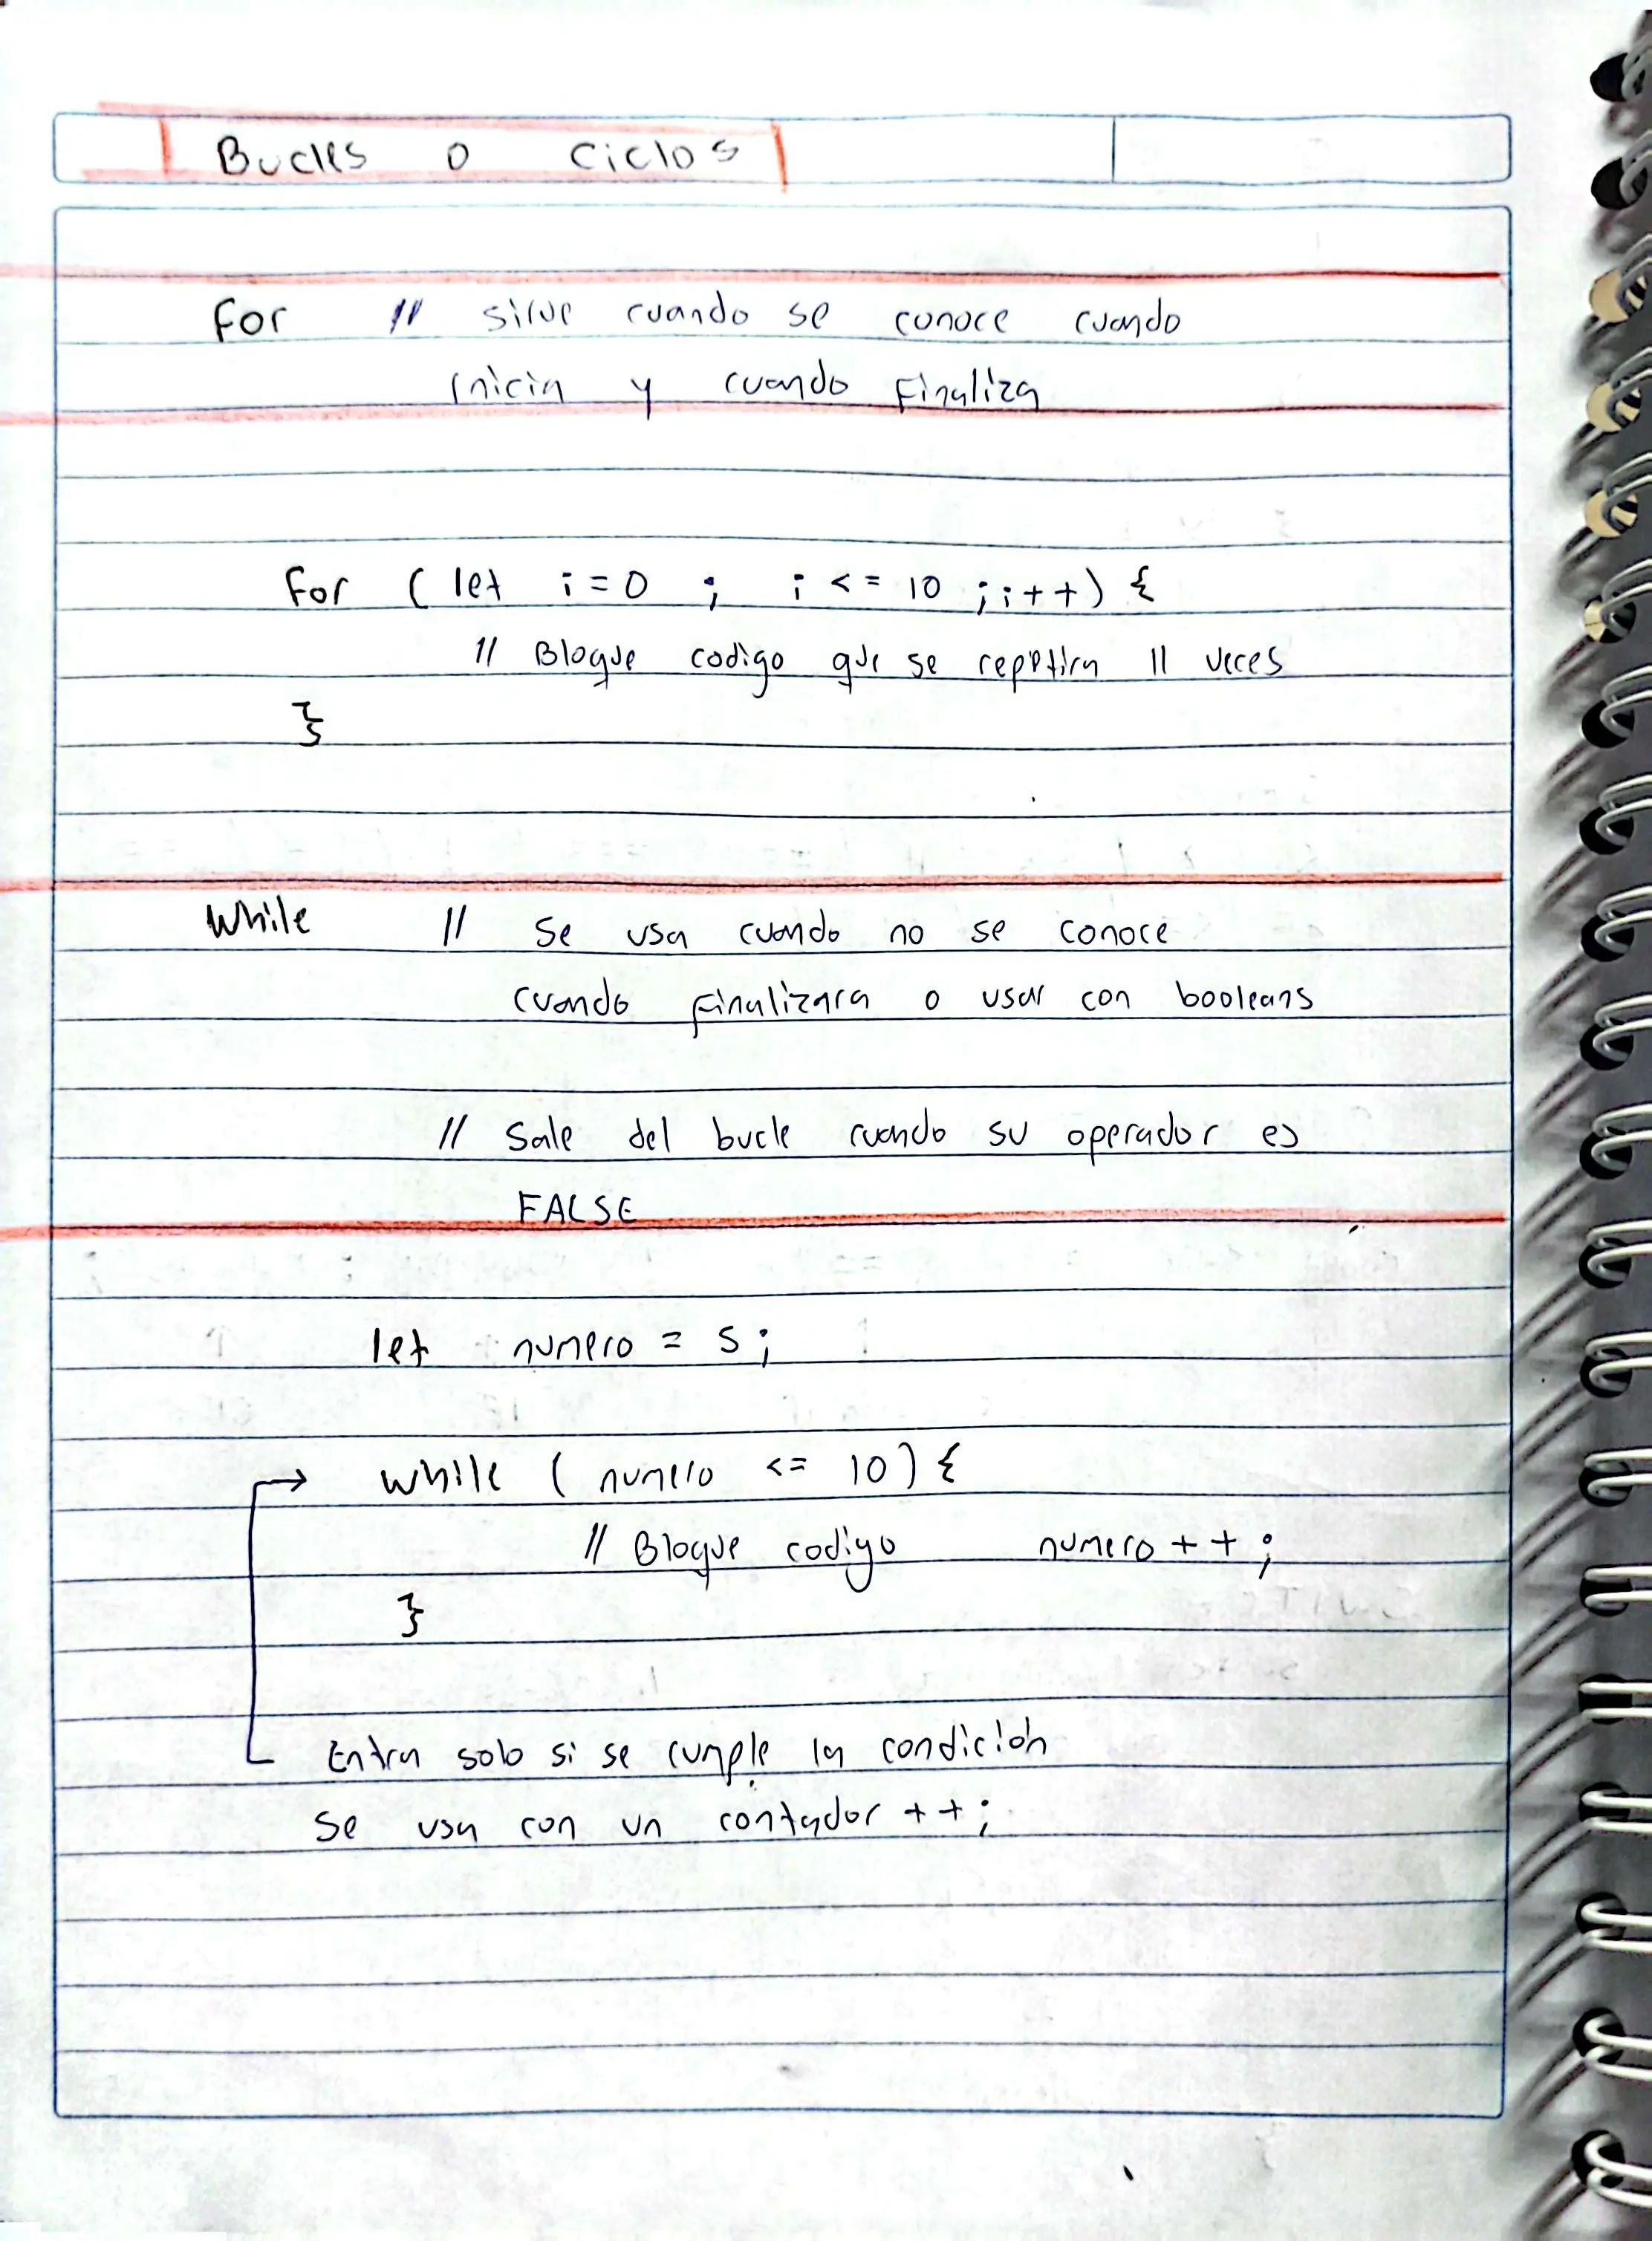 Bucles o Ciclos
For // sirve cuando se conoce cuando
inicia y cuando Finaliza
For ( let i = 0 ; i <= 10 ; i++) {
// Bloque codigo que se repetira 11 veces
}
While // Se usa cuando no se conoce
cuando finalizara o usar con booleans
// Sale del bucle cuando su operador es
FALSE
let numero = 5;
while ( numero <= 10) {
// Bloque codigo numero ++ ;
}
Entra solo si se cumple la condición
Se usa con un contador ++;